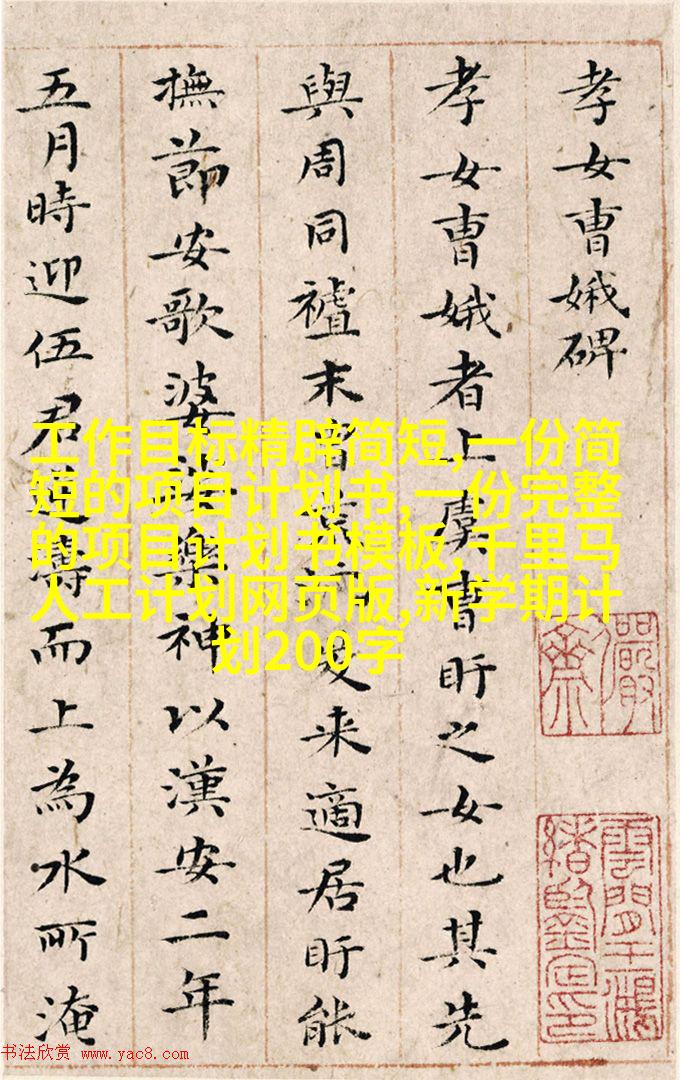 孝女曹娥碑
孝女曹娥者上虞曹盱之女也其先
與周同末胄来適居盱能
撫節安歌婆娑樂神以漢安二年
五月時迎伍君逆濤而上為水所淹
工作目标精辟简短,一份简
短的项目计划书,一份完整
的项目计划书模板,千里马
人工计划网页版,新学期计
划200字
儼齋
雲間王鴻緒鑒定印
书法欣赏 www.yac8.com